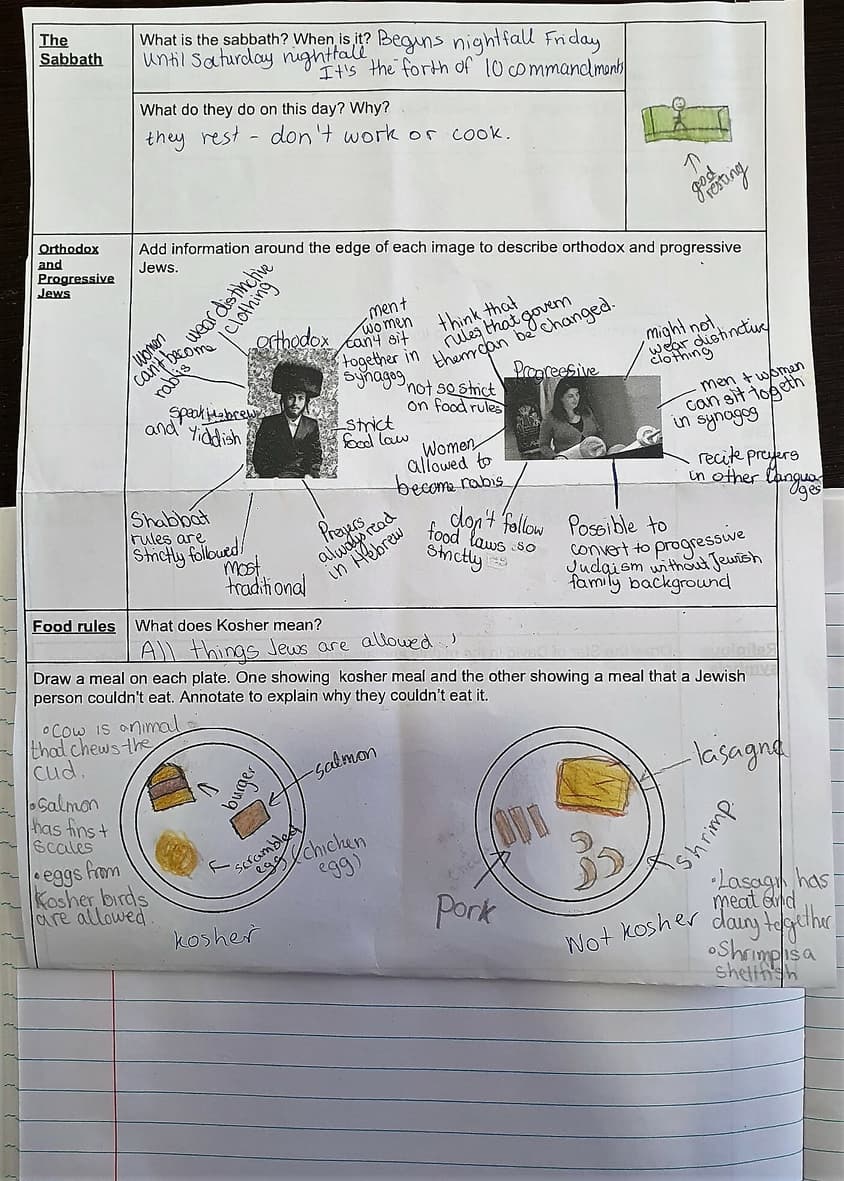 The
Sabbath
What is the sabbath? When is it? Begins nightfall Friday
until Saturday nightfall
It's the forth of 10 commandments
What do they do on this day? Why?
they rest - don't work or cook.
good
resting
Orthodox
and
Progressive
Jews
Add information around the edge of each image to describe orthodox and progressive
Jews.
Orthodox
Women
can't become
rabis
wear distinctive
clothing
men +
women
can't sit
together in
synagog
Speak Hebrew
and Yiddish
strict
food law
Shabbat
rules are
Strictly followed
most
traditional
Prayers
always read
in Hebrew
Progressive
think that
rules that govern
them can be changed.
might not
wear distinctive
clothing
not so strict
on food rules
men + women
can sit togeth
in synagog
Women
allowed to
become rabis
recite preyers
in other langua
ges
don't follow
food laws so
strictly
Possible to
convert to progressive
Judaism without Jewish
family background
Food rules
What does Kosher mean?
All things Jews are allowed
Draw a meal on each plate. One showing kosher meal and the other showing a meal that a Jewish
person couldn't eat. Annotate to explain why they couldn't eat it.
• Cow is animal
that chews the
cud.
• Salmon
has fins +
scales
• eggs from
Kosher birds
are allowed.
burger
salmon
scrambled
egg (chichen
egg)
kosher
lasagne
Shrimp
Pork
Not kosher
• Lasagn has
meat and
dairy together
• Shrimp is a
shellfish